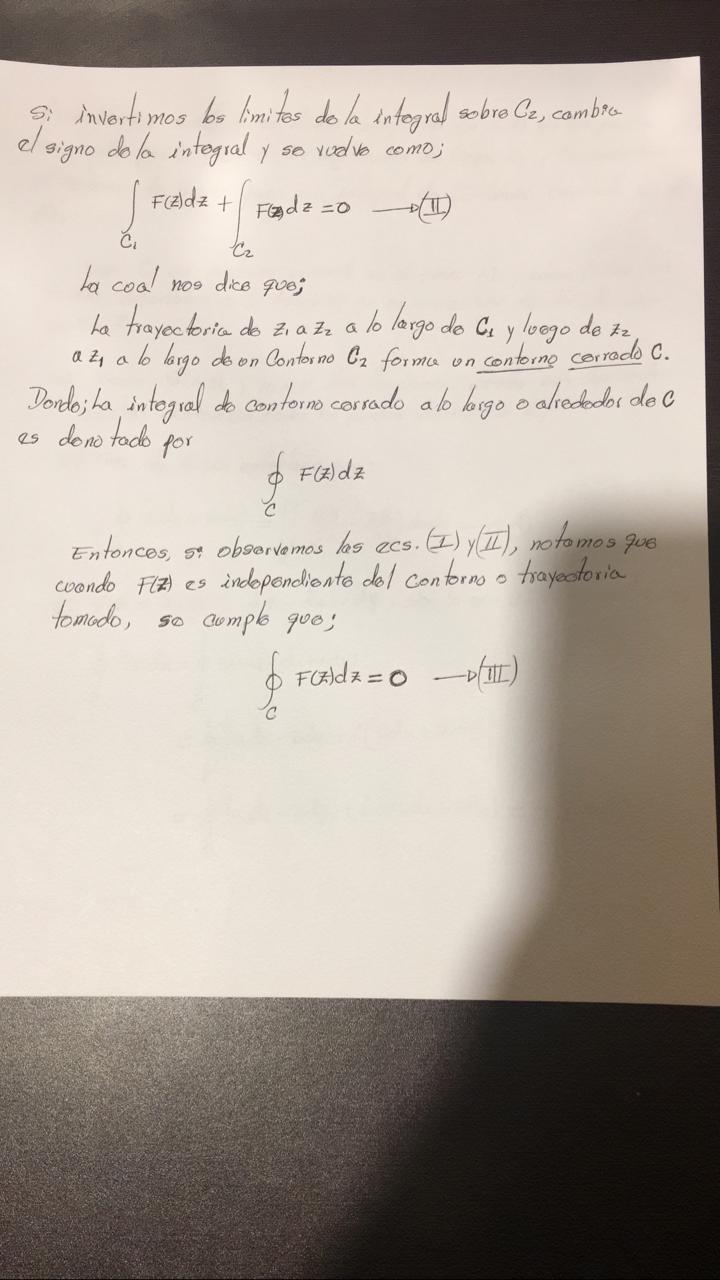 Si invertimos los limites de la integral sobre C₂, cambia
el signo de la integral y se vuelve como;
∫_{C₁} F(z)dz + ∫_{C₂} F(z)dz = 0 → (II)
La cual nos dice que;
La trayectoria de z₁ a z₂ a lo largo de C₁ y luego de z₂
a z₁ a lo largo de un Contorno C₂ forma un contorno cerrado C.
Donde; La integral de contorno cerrado a lo largo o alrededor de C
es denotado por
∮_C F(z)dz
Entonces, si observamos las ecs. (I) y (II), notamos que
cuando F(z) es independiente del contorno o trayectoria
tomado, se cumple que;
∮_C F(z)dz = 0 → (III)